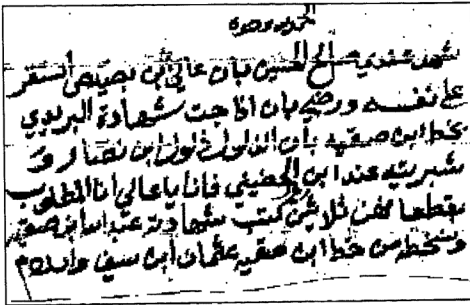 الحمد لله وحده
شهد عندي صالح الحسين بان عالي ابن بصيص استقر
على نفسه ورضي بان اذا جت شهادة البريدي
بخط ابن صقيه بان الذلول ذلول ابن نصار و
شبريته عند ابن الحضيني فانا يا عالي انا المطلوب
بقطعها ثمن ثلاثين كتب شهادته عبدالله ابن صقيه
ونخطه من خط ابن صقيه عثمان ابن سيف والسلام